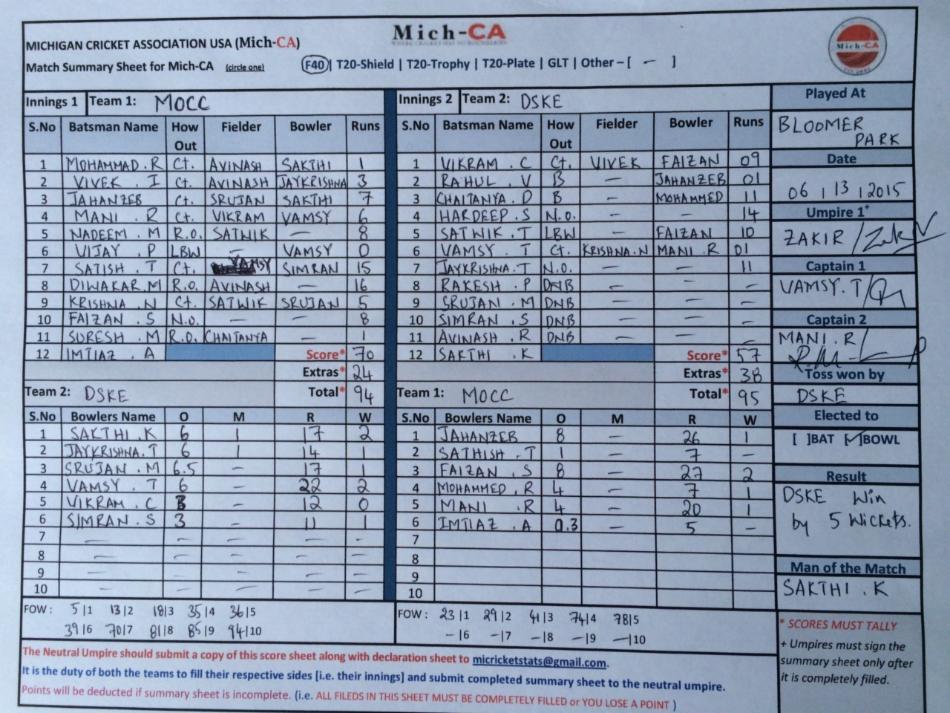 MICHIGAN CRICKET ASSOCIATION USA (Mich-CA)
Mich-CA
Mich-CA
Match Summary Sheet for Mich-CA (circle one) F40 | T20-Shield | T20-Trophy | T20-Plate | GLT | Other – [ — ]
Innings 1 Team 1: MOCC
S.No Batsman Name How Out Fielder Bowler Runs
1 MOHAMMAD.R Ct. AVINASH SAKTHI 1
2 VIVEK . I Ct. AVINASH JAYKRISHNA 3
3 JAHANZEB Ct. SRUJAN SAKTHI 7
4 MANI . R Ct. VIKRAM VAMSY 6
5 NADEEM . M R.O. SATWIK — 8
6 VIJAY . P LBW — VAMSY 0
7 SATISH . T Ct. VAMSY SIMRAN 15
8 DIWAKAR.M R.O. AVINASH — 16
9 KRISHNA . N Ct. SATWIK SRUJAN 5
10 FAIZAN . S N.O. — — 8
11 SURESH . M R.O. CHAITANYA — 1
12 IMTIAZ . A Score* 70
Extras* 24
Team 2: DSKE Total* 94
S.No Bowlers Name O M R W
1 SAKTHI . K 6 1 17 2
2 JAYKRISHNA.T 6 1 14 1
3 SRUJAN . M 6.5 — 17 1
4 VAMSY . T 6 — 22 2
5 VIKRAM . C 3 — 12 0
6 SIMRAN . S 3 — 11 1
7 — — — —
8 — — — —
9 — — — —
10 — — — —
FOW : 5|1 13|2 18|3 35|4 36|5
39|6 70|7 81|8 85|9 94|10
Innings 2 Team 2: DSKE
S.No Batsman Name How Out Fielder Bowler Runs
1 VIKRAM . C Ct. VIVEK FAIZAN 09
2 RAHUL . V B — JAHANZEB 01
3 CHAITANYA . D B — MOHAMMED 11
4 HARDEEP . S N.O. — — 14
5 SATWIK . T LBW — FAIZAN 10
6 VAMSY . T Ct. KRISHNA.N MANI . R 01
7 JAYKRISHNA.T N.O. — — 11
8 RAKESH . P DNB — — —
9 SRUJAN . M DNB — — —
10 SIMRAN . S DNB — — —
11 AVINASH . R DNB — — —
12 SAKTHI . K Score* 57
Extras* 38
Team 1: MOCC Total* 95
S.No Bowlers Name O M R W
1 JAHANZEB 8 — 26 1
2 SATHISH . T 1 — 7 —
3 FAIZAN . S 8 — 27 2
4 MOHAMMED . R 4 — 7 1
5 MANI . R 4 — 20 1
6 IMTIAZ . A 0.3 — 5 —
7
8
9
10
FOW : 23|1 29|2 41|3 74|4 78|5
—|6 —|7 —|8 —|9 —|10
Played At
BLOOMER
PARK
Date
06 | 13 | 2015
Umpire 1+
ZAKIR
Captain 1
VAMSY. T
Captain 2
MANI . R
Toss won by
DSKE
Elected to
[ ]BAT [✓]BOWL
Result
DSKE Win
by 5 Wickets.
Man of the Match
SAKTHI . K
* SCORES MUST TALLY
+ Umpires must sign the
summary sheet only after
it is completely filled.
The Neutral Umpire should submit a copy of this score sheet along with declaration sheet to micricketstats@gmail.com.
It is the duty of both the teams to fill their respective sides [i.e. their innings] and submit completed summary sheet to the neutral umpire.
Points will be deducted if summary sheet is incomplete. (i.e. ALL FILEDS IN THIS SHEET MUST BE COMPLETELY FILLED or YOU LOSE A POINT )